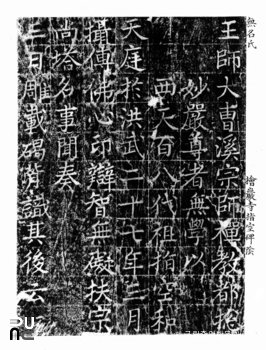 無名氏
檜巖寺指空碑陰
王師大曹溪宗師禪教都摠
妙嚴尊者無學以
西天百八代祖指空和
天庭於洪武二十年三月
攝傳佛心印辯智無礙扶宗
尚塔名事聞奏
三日雕載碣背識其後云